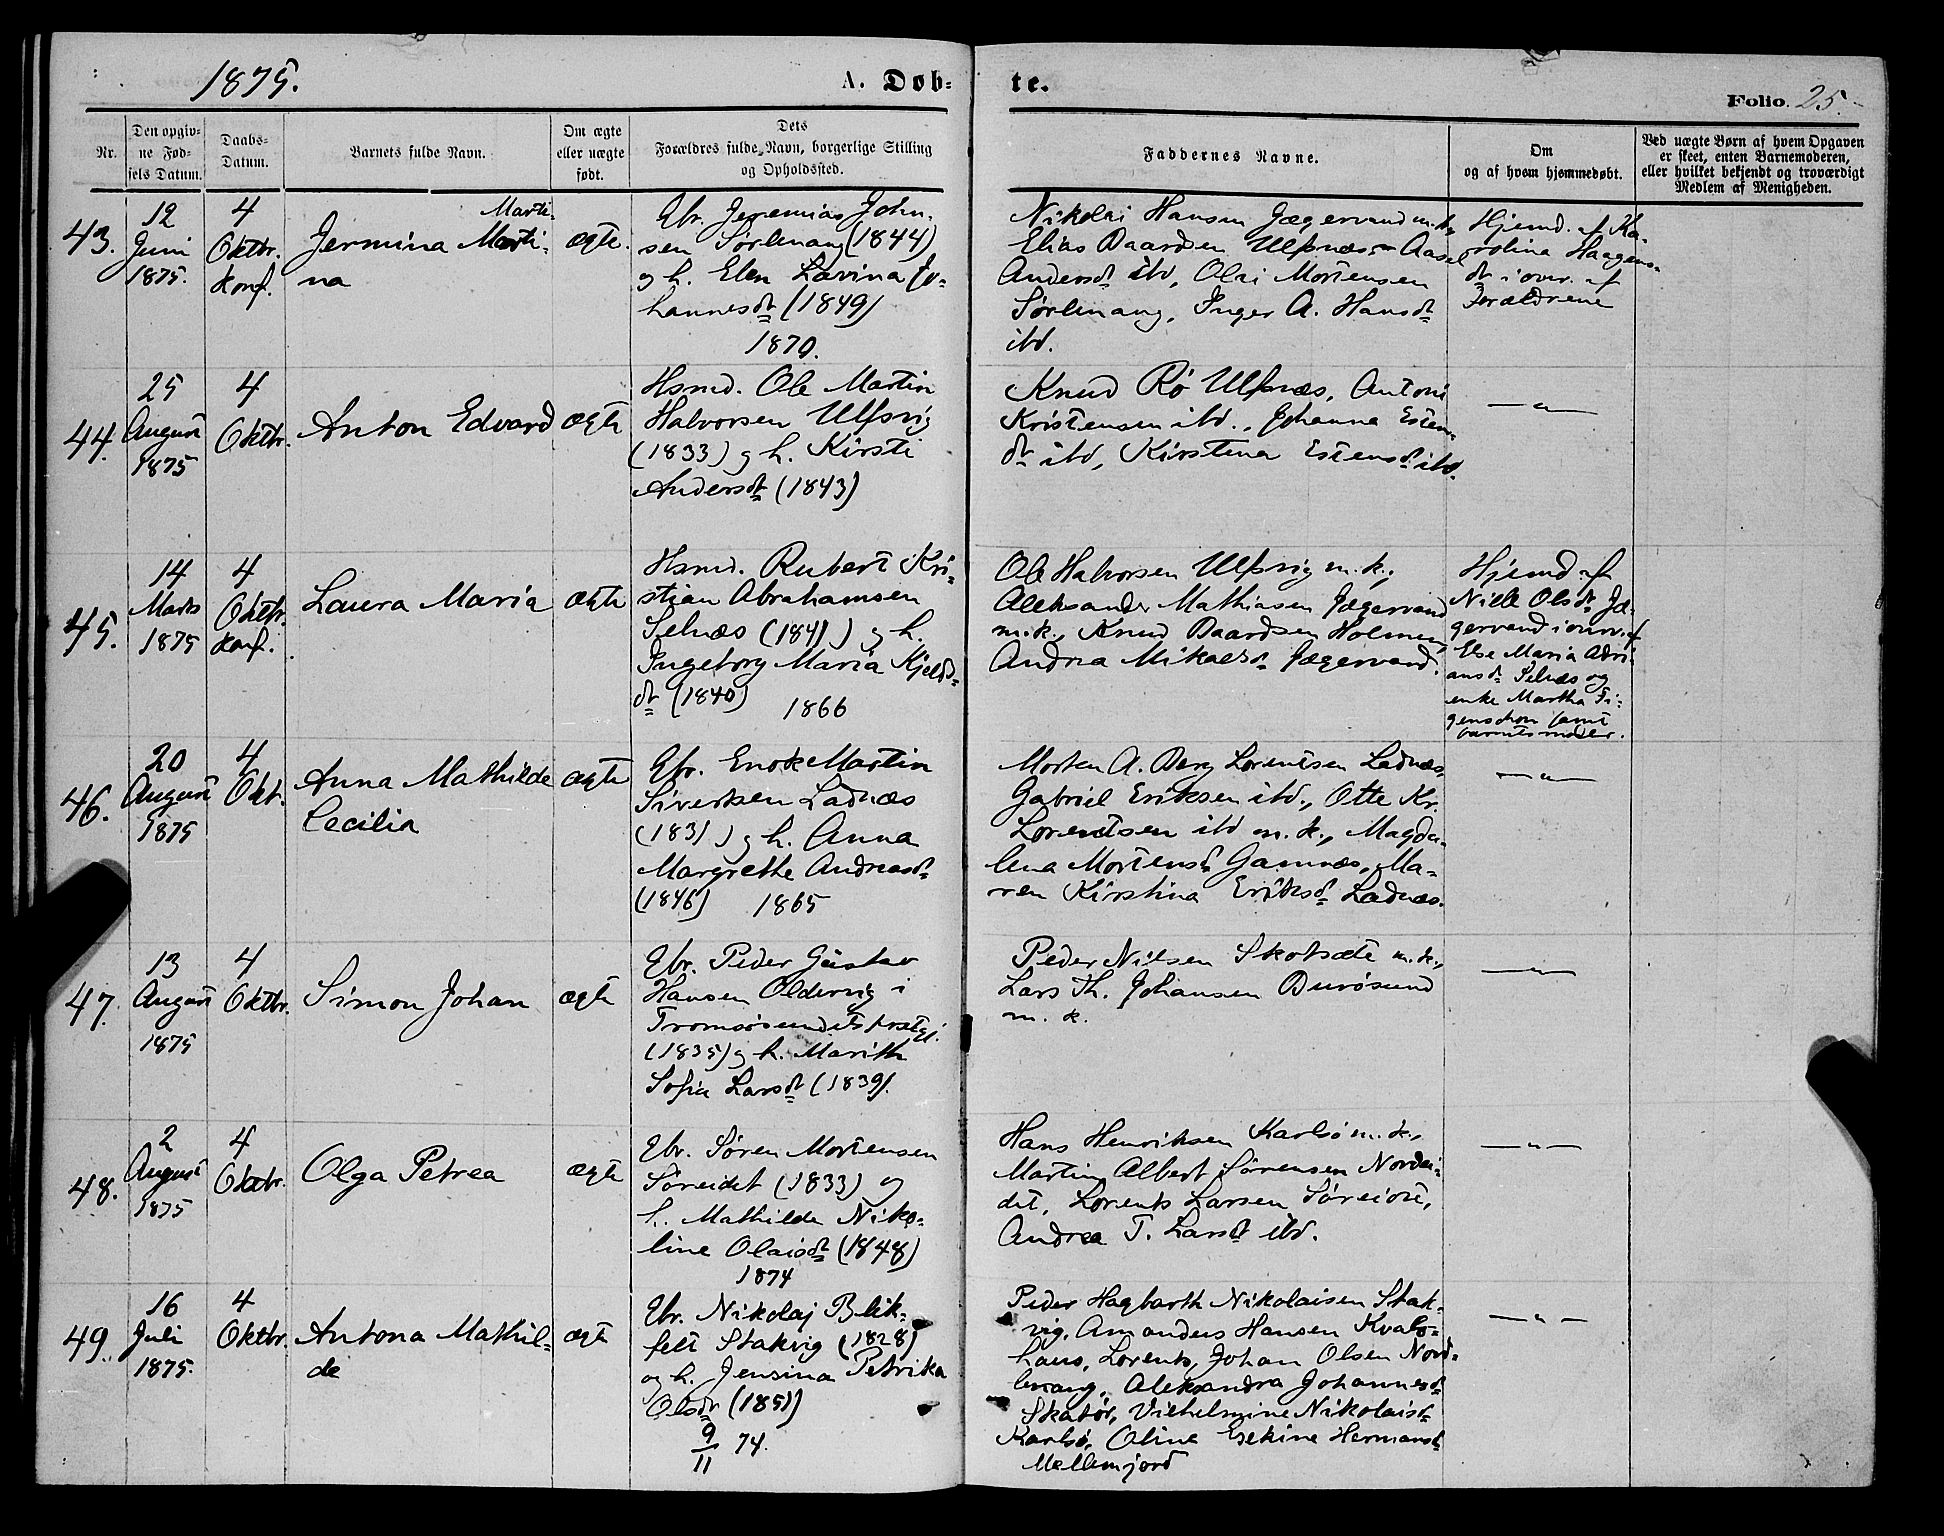 1875.
A. Døb=
te.
Folio. 25.
Nr.
Den opgiv=
ne Fød=
sels Datum.
Daabs=
Datum.
Barnets fulde Navn.
Om ægte
eller uægte
født.
Dets
Forældres fulde Navn, borgerlige Stilling
og Opholdssted.
Faddernes Navne.
Om
og af hvem hjemmedøbt.
Ved uægte Børn af hvem Opgaven
er skeet, enten Barnemoderen,
eller hvilket bekjendt og troværdigt
Medlem af Menigheden.
43.
12
Juni
1875.
4
Oktbr.
konf.
Marti-
Jermina Marti-
na
ægte.
Gbr. Jeremias John-
sen Sørlenang (1844)
og h. Elen Lavina Jo-
hannesdt (1849)
1870.
Nikolai Hansen Jægervand m.k.,
Elias Baardsen Ulfsnæs, Aasel
Andersdt ibd, Olai Mortensen
Sørlenang, Inger A. Hansdt
ibd.
Hjemd. af Ka-
rolina Haagens-
dt i overv. af
Forældrene
44.
25
August
1875
4
Oktbr.
Anton Edvard
ægte
Hsmd. Ole Martin
Halvorsen Ulfsvig
(1833) og h. Kirsti
Andersdt (1843)
Knud Rø Ulfsnæs, Antoni
Kristensen ibd., Johanna Estens-
dt ibd, Kirstina Estensdt ibd.
— " —
45.
14
Marts
1875
4
Oktbr.
konf.
Laura Maria
ægte
Hsmd. Rubert Kri-
stian Abrahamsen
Selnæs (1841) og h.
Ingeborg Maria Kjelds-
dt (1840)
1866
Ole Halvorsen Ulfsvig m.k.,
Aleksander Mathiasen Jægervand
m.k., Knud Baardsen Holmen,
Andrea Mikalsdt Jægervand.
Hjemd. af
Nille Olsdt Jæ-
gervand i overv. af
Else Maria Adri-
ansdt Selnæs og
enke Martha Fi-
genschou samt
barnets moder.
46.
20
August
1875
4
Okt.
Anna Mathilde
Cecilia
ægte
Gbr. Enok Martin
Sivertsen Ladnæs
(1831) og h. Anna
Margrethe Andreasdt
(1846)
1865
Morten A. Berg Lorentsen Ladnæs,
Gabriel Eriksen ibd., Otte Kr.
Lorentsen ibd m.k., Magda-
lena Mortensdt Gamnæs, Ma-
ren Kirstina Eriksdt Ladnæs.
— " —
47.
13
August
1875
4
Oktbr.
Simon Johan
ægte
Gbr. Peder Gustav
Hansen Oldervig i
Tromsøsundets prstgj.
(1835) og h. Marith
Sofia Larsdt (1839).
Peder Nilsen Skotsæte m.k.,
Lars Th. Johansen Burøsund
m. k.
— " —
48.
2
August
1875
4
Oktbr.
Olga Petrea
ægte
Gbr. Søren Mortensen
Søreidet (1833) og
h. Mathilde Niko-
line Olaisdt (1848)
1874
Hans Henriksen Karlsø m.k.,
Martin Albert Sørensen Nordei-
det, Lorents Larsen Søreidet,
Andrea T. Larsdt ibd.
— " —
49.
16
Juli
1875.
4
Oktbr.
Antona Mathil-
de
ægte
Gbr. Nikolaj Blik-
felt Stakvig (1828)
og h. Jensina Petrika
Olsdt (1851)
9/11 74.
Peder Hagbarth Nikolaisen Stak-
vig, Amandus Hansen Kvals-
haus, Lorents Johan Olsen Nord-
lenang, Aleksandra Johannesdt
Skatør, Vilhelmine Nikolaisdt
Karlsø, Oline Esekine Hermansdt
Mellemjord
— " —